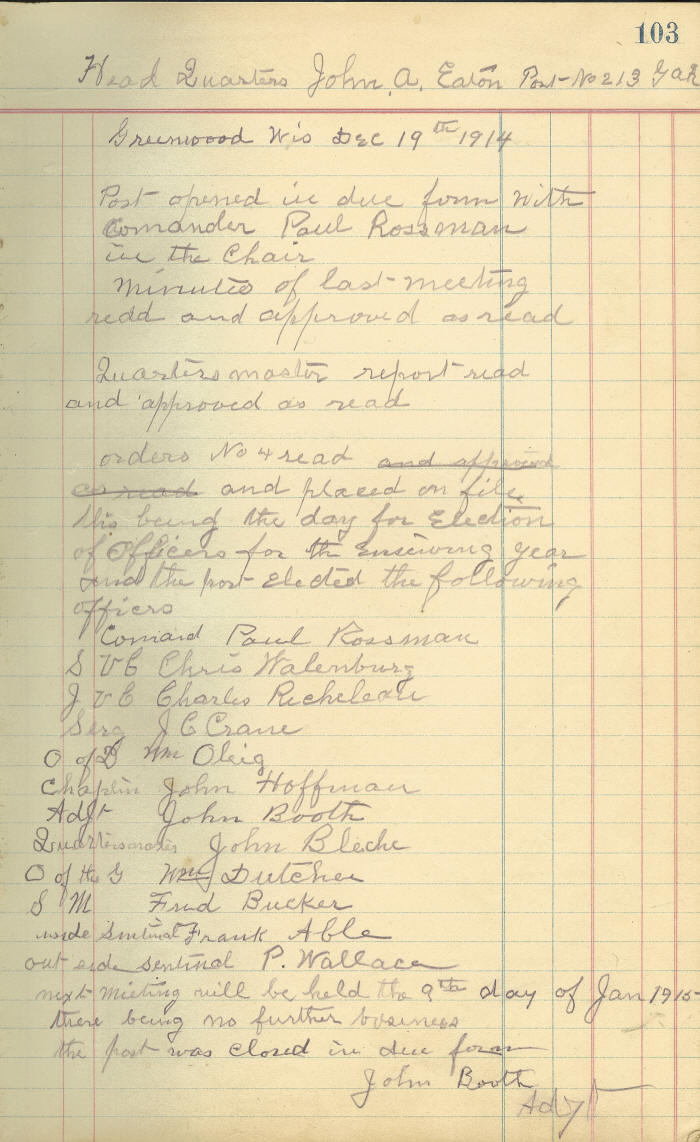 103
Head Quarters John A. Eaton Post No 213 GAR
Greenwood Wis Dec 19th 1914
Post opened in due form with
Comander Paul Rossman
in the Chair
Minutes of last meeting
redd and approved as read
Quartersmaster report read
and approved as read
orders No 4 read and approved
as read and placed on file
this being the day for Election
of Officers for the Ensewing year
and the post Elected the following
officers
Comard Paul Rossman
S V C Chris Walenburg
J V C Charles
Serg J C Crane
O of D Wm Oleig
Chaplin John Hoffman
Adjt John Booth
Quartersmaster John Bleche
O of the G Wm Dutcher
S M Fred Bucker
inside Sentinal Frank Able
out side sentinal P. Wallace
next Meeting will be held the 9th day of Jan 1915
there being no further business
the post was closed in due form
John Booth
Adjt